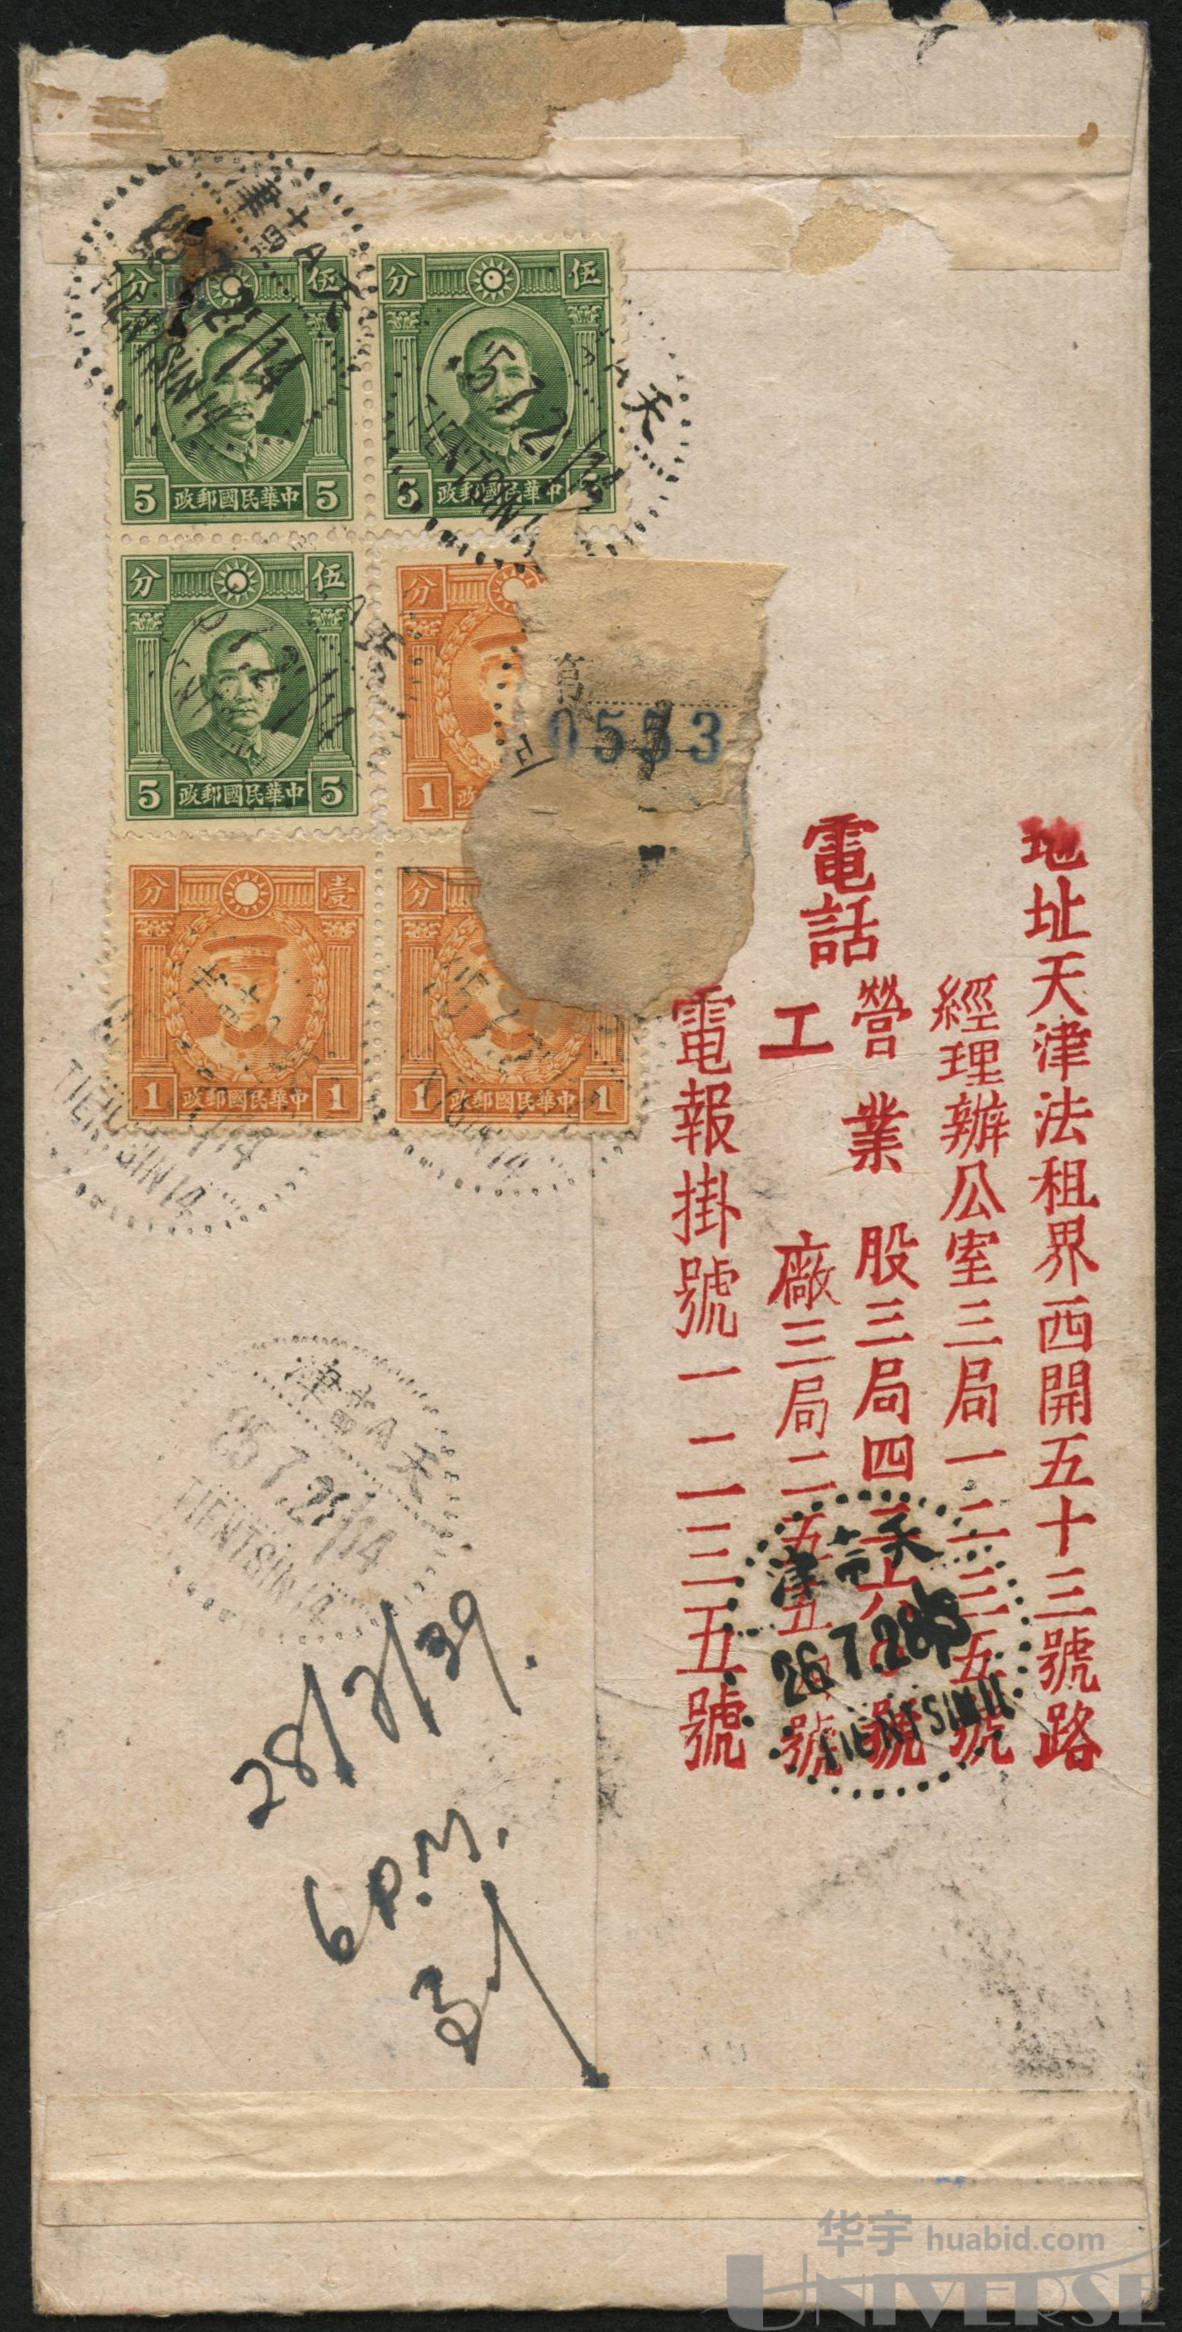 地址天津法租界西開五十三號路
經理辦公室三局一二三五號
電話
營業股三局四
工廠三局二五五
號
電報掛號一二三五號
分 伍
5 政郵國民華中 5
分 伍
5 政郵國民華中 5
分 伍
5 政郵國民華中 5
分
1 政
分 壹
1 政郵國民華中 1
分
1 政郵國民華中 1
第
0553
津 十四 A 天
TIENTSIN 14
A 天
5.7.21/14
TIENTSIN
TIENTSIN 14
津 十四 A 天
25.7.21/14
TIENTSIN 14
津 天
26.7.28
TIENTSIN 11
28/2/39.
6 P.M.
华宇 huabid.com
UNIVERSE